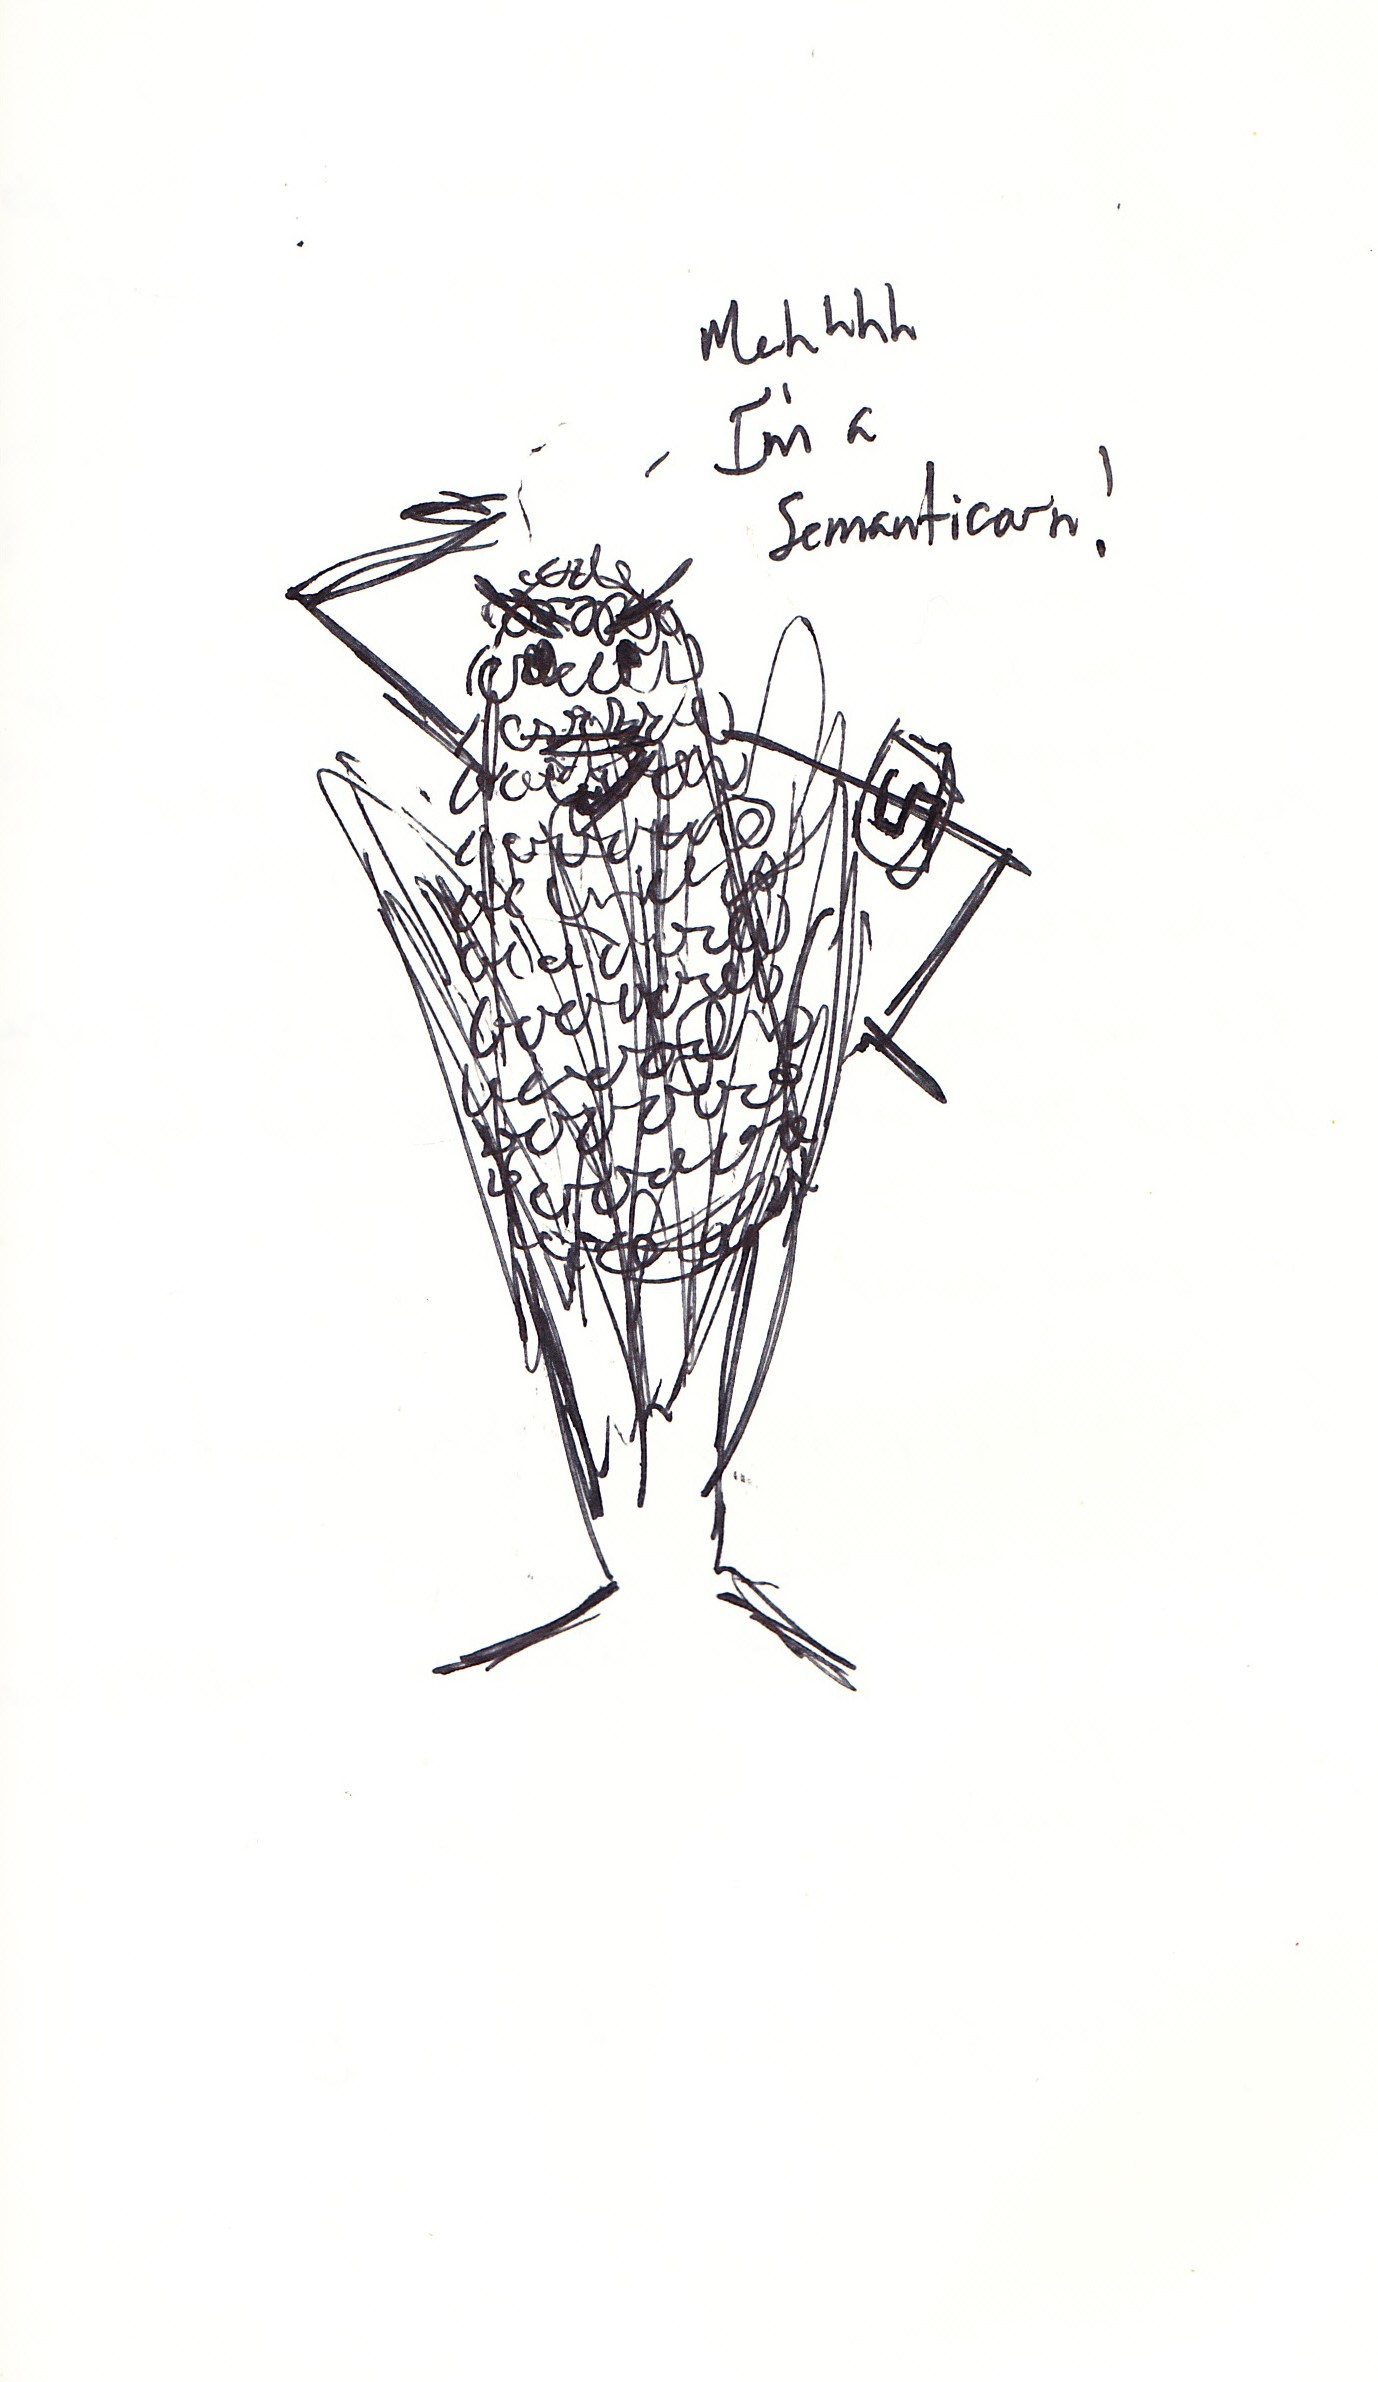 Mehhhh
I'm a
Semanticorn!
S